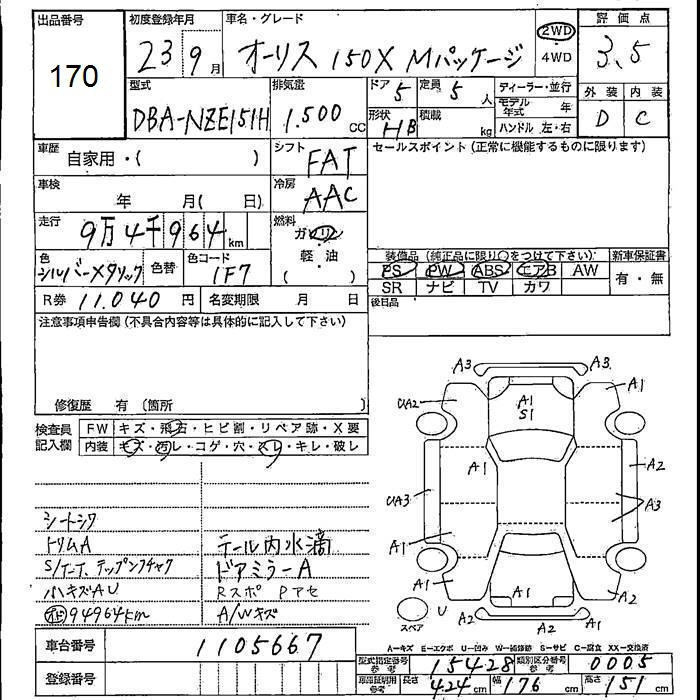 出品番号
170
初度登録年月
23 9月
車名・グレード
オーリス 150X Mパッケージ
2WD
4WD
評価点
3.5
型式
DBA-NZE151H
排気量
1.500 cc
ドア 5
定員 5 人
形状 HB
積載 kg
ディーラー・並行
モデル年式 年
ハンドル 左・右
外装 内装
D C
車歴 自家用・( )
シフト FAT
セールスポイント (正常に機能するものに限ります)
車検 年 月( 日)
冷房 AAC
走行 9万4千964km
燃料
ガソリン
軽・油
( )
色 シルバーメタリック
色替
色コード 1F7
装備品 (純正品に限り○をつけて下さい) 新車保証書
PS PW ABS エアB AW 有・無
SR ナビ TV カワ
R券 11.040 円
名変期限 月 日
後日品
注意事項申告欄 (不具合内容等は具体的に記入して下さい)
修復歴 有 〔箇所 〕
検査員記入欄
FW キズ・飛石・ヒビ割・リペア跡・X要
内装 キズ・汚レ・コゲ・穴・スレ・キレ・破レ
シートシワ
トリムA
テール内水滴
ドアミラーA
ハキズAU
Rスポ Pアセ
94964km
A/Wキズ
A3 A3
UA2 A1 S1 A1
A1 A2
UA3 A3
A1
A1 A1
スペア U A2 A2 A1
A=キズ E=エクボ U=凹み W=補修跡 S=サビ C=腐食 XX=交換済
車台番号 1105667
登録番号
型式指定番号 参考 15428
類別区分番号 参考 0005
車庫証明用 参考 長さ 424 cm 幅 176 cm 高さ 151 cm